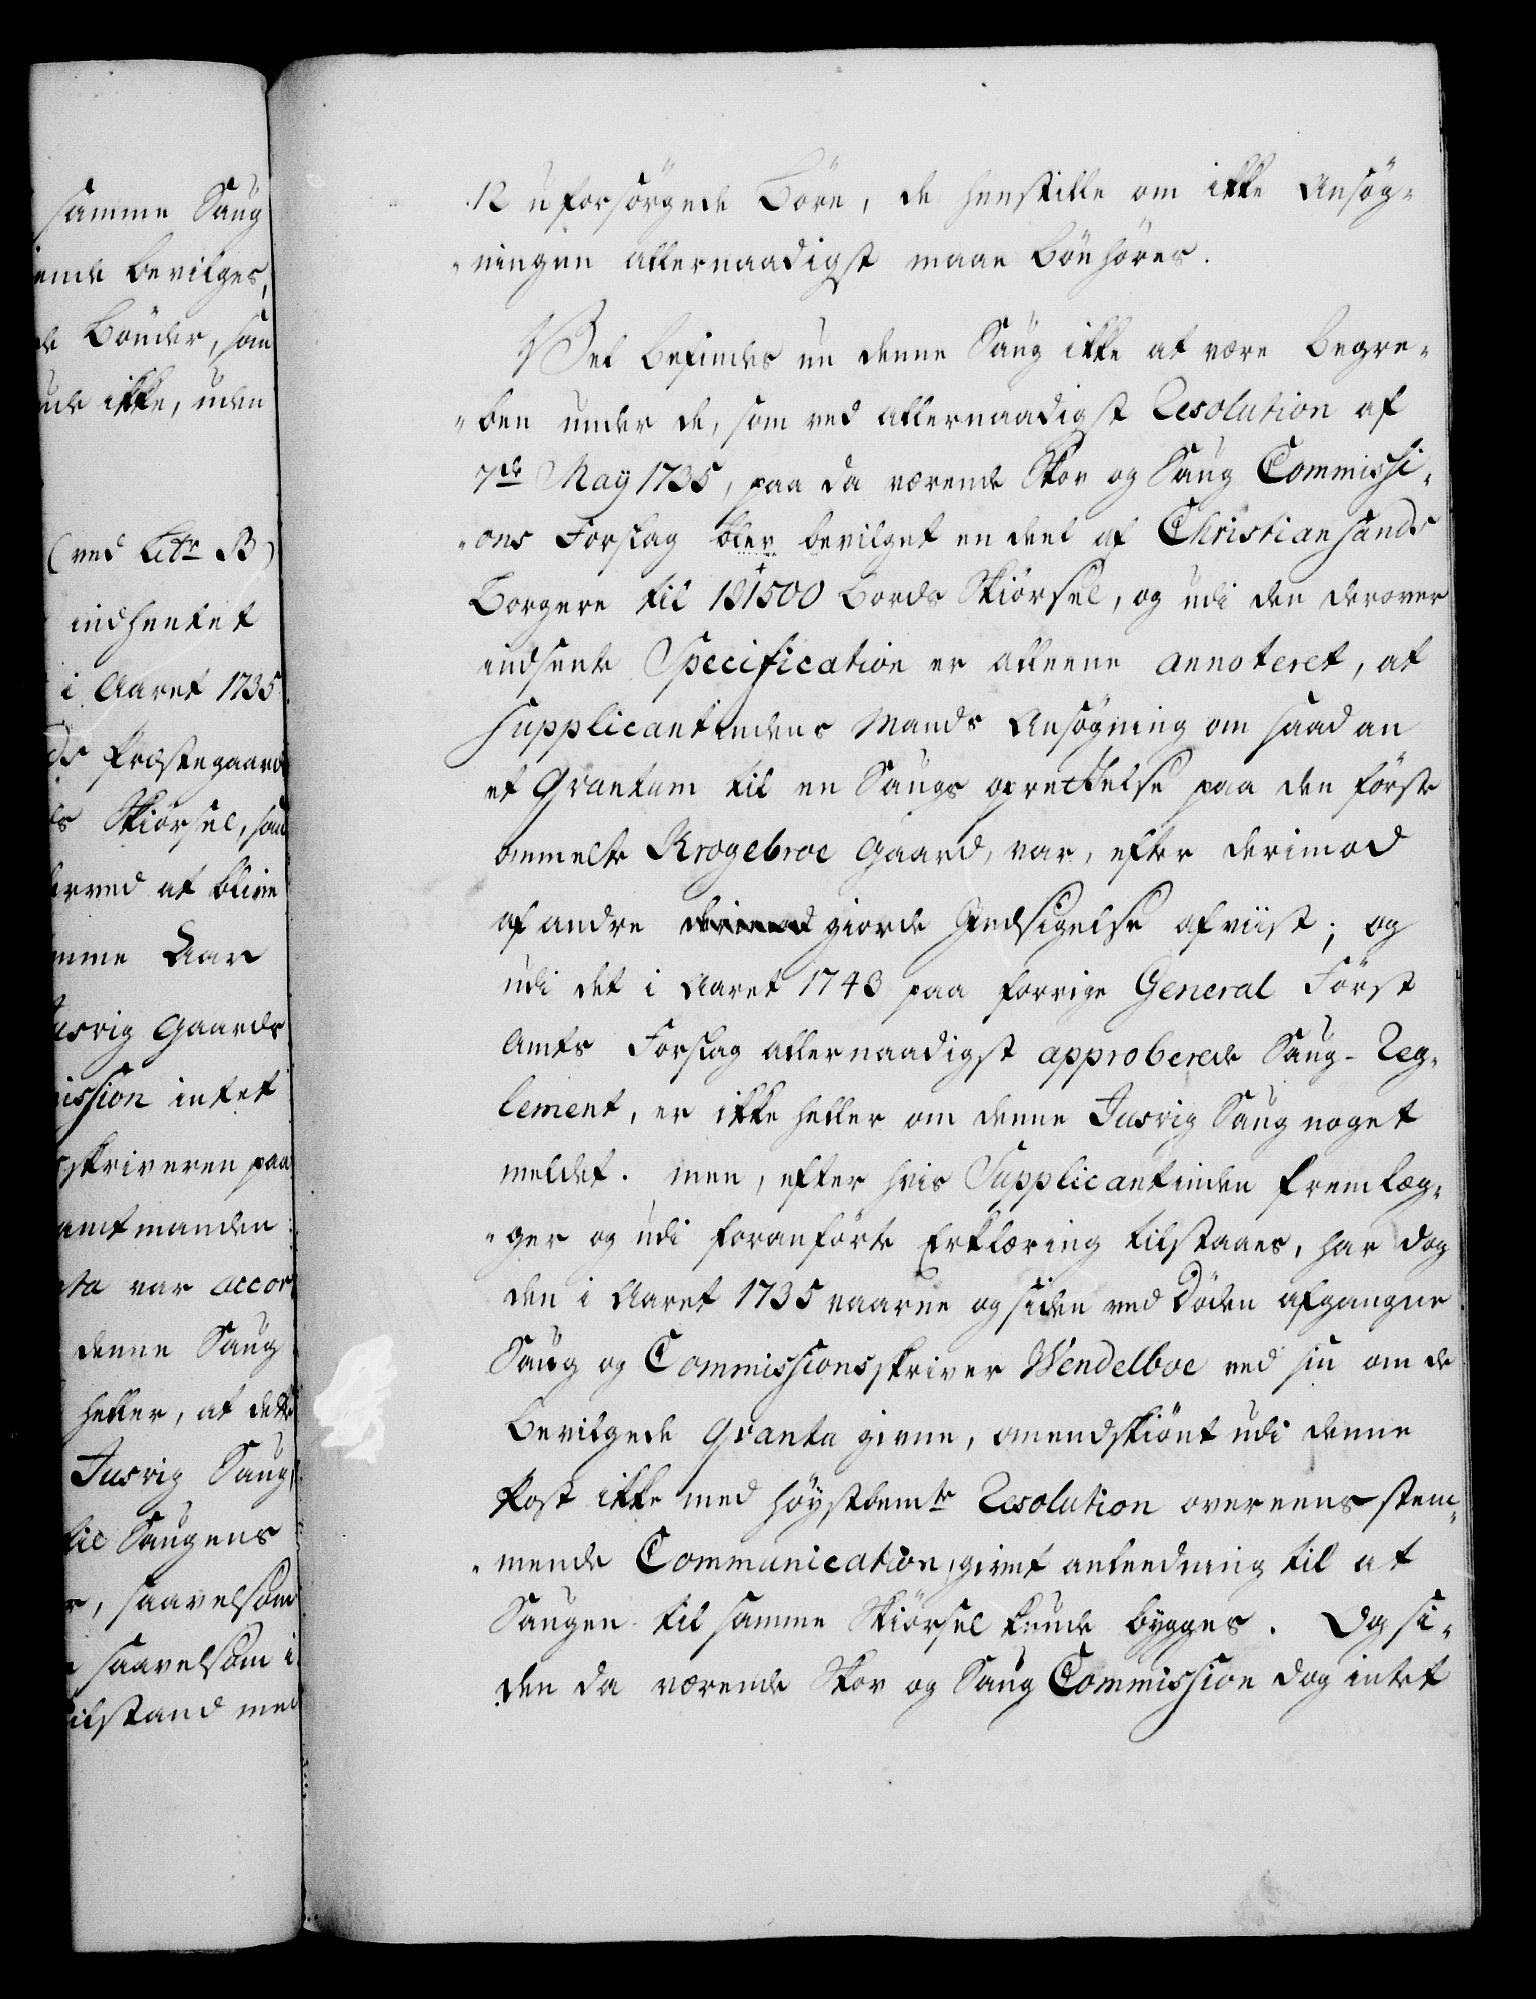 samme Saug
ende bevilges,
de Bönder, som
nde ikke, uden
(ved Litr B)
indhentet
i Aaret 1735
ds Præstegaard
ds Skiörsel, som
erved at blive
mme Aar
Jusvig Gaards
ission intet
skriveren paa
amtmanden
nta var accor
denne Saug
heller, at dette
Jusvig Saug
til Saugens
r, saavelsom
saavelsom i
ilstand med
12 uforsörgede Börn, de henstille om ikke Ansög-
ningen allernaadigst maae bönhöres.
Vel befindes nu denne Saug ikke at være begre-
ben under de, som ved allernaadigst Resolution af
7de May 1735, paa da værende Skov og Saug Commissi-
ons Forslag blev bevilget en deel af Christiansands
Borgere til 181500 Bords Skiörsel, og udi den derover
indsente Specification er alleene annoteret, at
Supplicantindens Mands Ansögning om saadan
et Qvantum til en Saugs oprettelse paa den först
ommelte Krogebroe Gaard, var, efter derimod
af andre derimod giorde Indsigelse afviist; og
udi det i Aaret 1743 paa forrige General Forst
Amts Forslag allernaadigst approberede Saug-Reg-
lement, er ikke heller om denne Jusvig Saug noget
meldet. men, efter hvis Supplicantinden fremlæg-
ger og udi foranförte Erklæring tilstaaes, har dog
den i Aaret 1735 vaarne og siden ved Döden afgangne
Saug og Commissionsskriver Wendelboe ved sin om de
bevilgede Qvanta givne, omendskiönt udi denne
Post ikke med höystbemte Resolution overeensstem-
mende Communication, givet anleedning til at
Saugen til samme Skiörsel kunde bygges. Og si-
den da værende Skov og Saug Commission dog intet